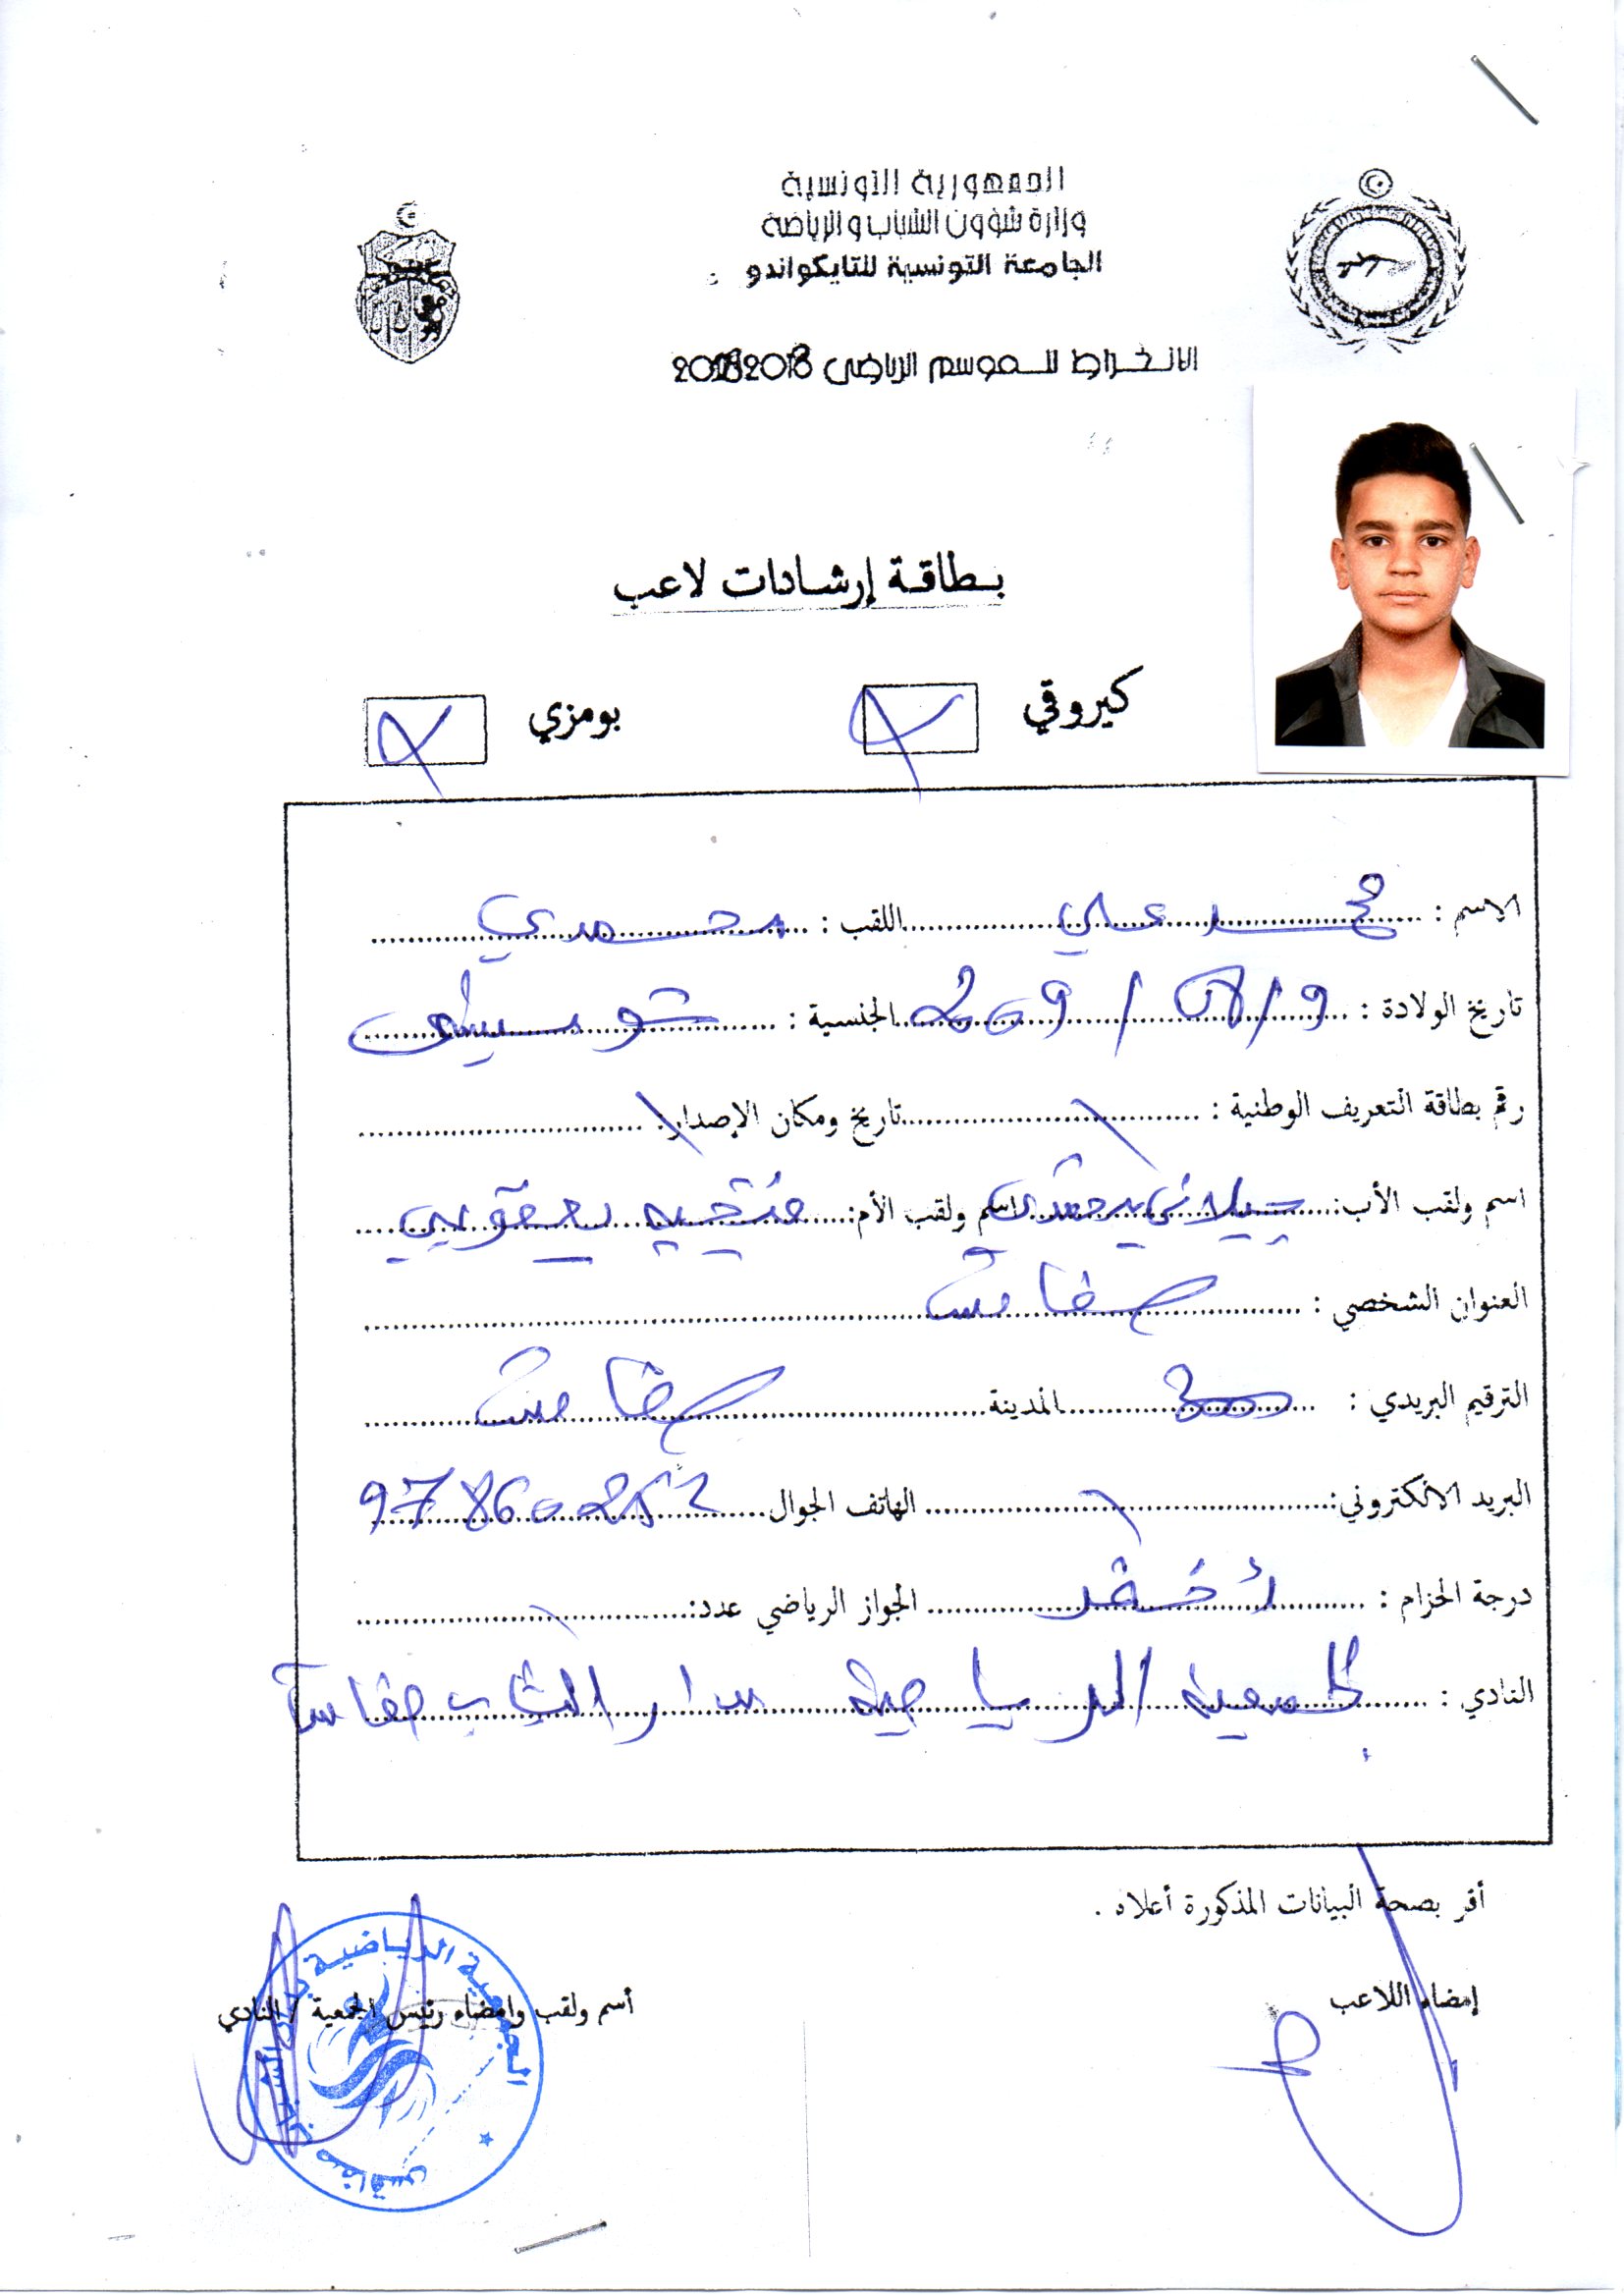 الجمهورية التونسية
وزارة شؤون الشباب والرياضة
الجامعة التونسية للتايكواندو
الانخراط للموسم الرياضي
بطاقة إرشادات لاعب
كيروقي بومزي
الاسم : محمد علي اللقب : محمدي
تاريخ الولادة : الجنسية : تونسي
رقم بطاقة التعريف الوطنية : تاريخ ومكان الإصدار:
اسم ولقب الأب: اسم ولقب الأم: فتحية يعقوبي
العنوان الشخصي : صفاقس
الترقيم البريدي : 3000 المدينة صفاقس
البريد الالكتروني: الهاتف الجوال
درجة الحزام : أخضر الجواز الرياضي عدد:
النادي : الجمعية الرياضية بدار الشباب صفاقس
أقر بصحة البيانات المذكورة أعلاه .
إمضاء اللاعب أسم ولقب وامضاء رئيس الجمعية / النادي
الجمعية الرياضية بدار الشباب صفاقس